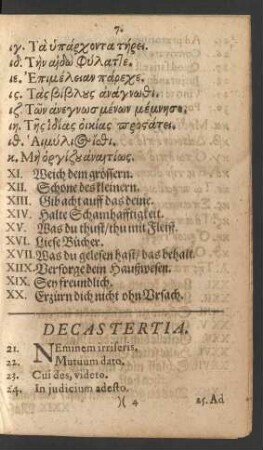 7.
ιγ. Τὰ ὑπάρχοντα τήρει.
ιδ. Τὴν αἰδῶ φύλαττε.
ιε. Ἐπιμέλειαν πάρεχε.
ις. Τὰς βίβλους ἀνάγνωθι.
ιζ. Τῶν ἀνεγνωσμένων μέμνησο.
ιη. Τῆς ἰδίας οἰκίας προστάτει.
ιθ. Αἱμύλιος ἴσθι.
κ. Μὴ ὀργίζου ἀναιτίως.
XI. Weich dem grössern.
XII. Schone des kleinern.
XIII. Gib acht auff das deine.
XIV. Halte Schamhafftigkeit.
XV. Was du thust/ thu mit Fleiß.
XVI. Liese Bücher.
XVII. Was du gelesen hast/ das behalt.
XIIX. Versorge dein Haußwesen.
XIX. Sey freundlich.
XX. Erzürn dich nicht ohn Ursach.
DECAS TERTIA.
21. NEminem irriseris.
22. Mutuum dato.
23. Cui des, videto.
24. In judicium adesto.
)( 4 25. Ad